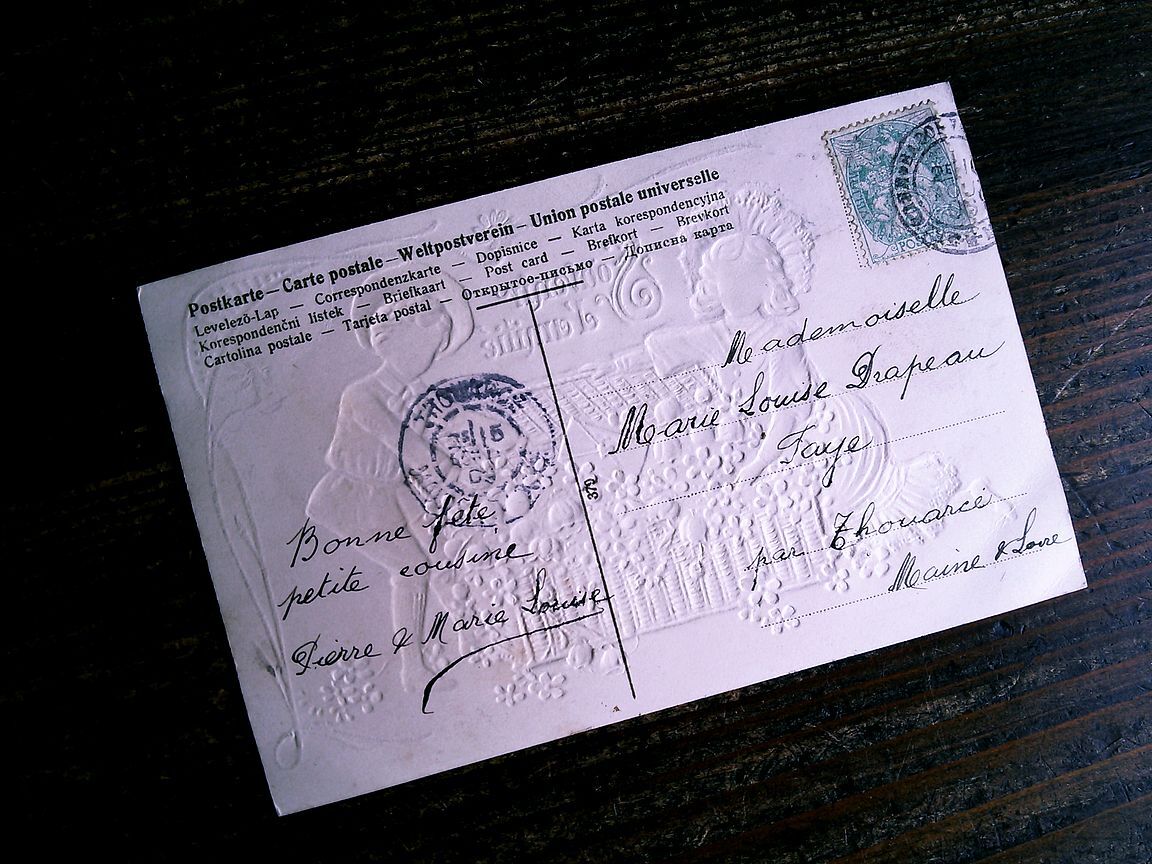 Postkarte — Carte postale — Weltpostverein — Union postale universelle
Levelező-Lap — Correspondenzkarte — Dopisnice — Karta korespondencyjna
Korespondenční listek — Briefkaart — Post card — Brefkort — Brevkort
Cartolina postale — Tarjeta postal — Открытое-письмо — Дописна карта
Bonne fête
petite cousine
Pierre & Marie Louise
370
Mademoiselle
Marie Louise Drapeau
Faye
par Thouarcé
Maine & Loire